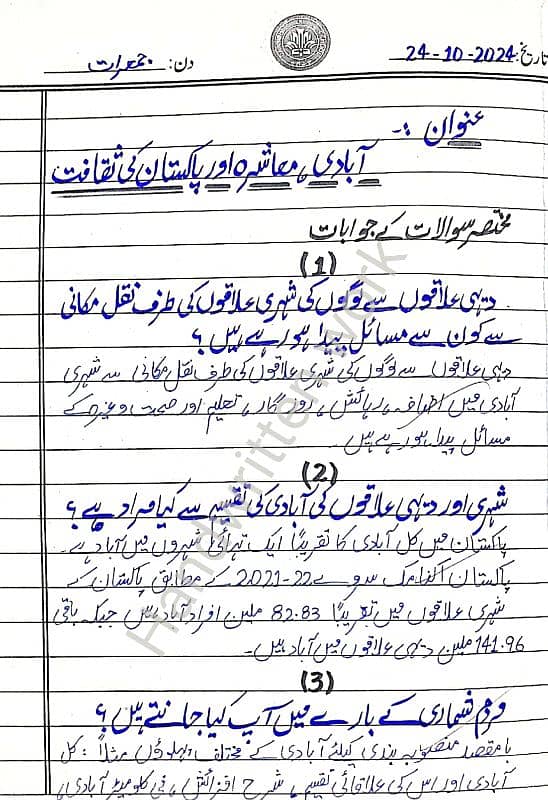 تاریخ: 24-10-2024
دن: جمعرات
عنوان :-
آبادی، معاشرہ اور پاکستان کی ثقافت
مختصر سوالات کے جوابات
(1)
دیہی علاقوں سے لوگوں کی شہری علاقوں کی طرف نقل مکانی
سے کون سے مسائل پیدا ہو رہے ہیں ؟
دیہی علاقوں سے لوگوں کی شہری علاقوں کی طرف نقل مکانی سے شہری
آبادی میں اضافہ، رہائش، روزگار، تعلیم اور صحت وغیرہ کے
مسائل پیدا ہو رہے ہیں۔
(2)
شہری اور دیہی علاقوں کی آبادی کی تقسیم سے کیا مراد ہے ؟
پاکستان میں کل آبادی کا تقریباً ایک تہائی شہروں میں آباد ہے۔
پاکستان اکنامک سروے 22-2021 کے مطابق پاکستان کے
شہری علاقوں میں تقریباً 82.83 ملین افراد آباد ہیں جبکہ باقی
141.96 ملین دیہی علاقوں میں آباد ہیں۔
(3)
مردم شماری کے بارے میں آپ کیا جانتے ہیں ؟
بامقصد منصوبہ بندی کیلئے آبادی کے مختلف پہلوؤں مثلاً : کل
آبادی اور اس کی علاقائی تقسیم، شرح افزائش، فی کلومیٹر آبادی،
Handwritten work